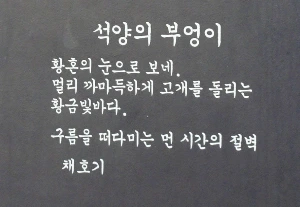 석양의 부엉이
황혼의 눈으로 보네.
멀리 까마득하게 고개를 돌리는
황금빛바다.
구름을 떠다미는 먼 시간의 절벽
채호기